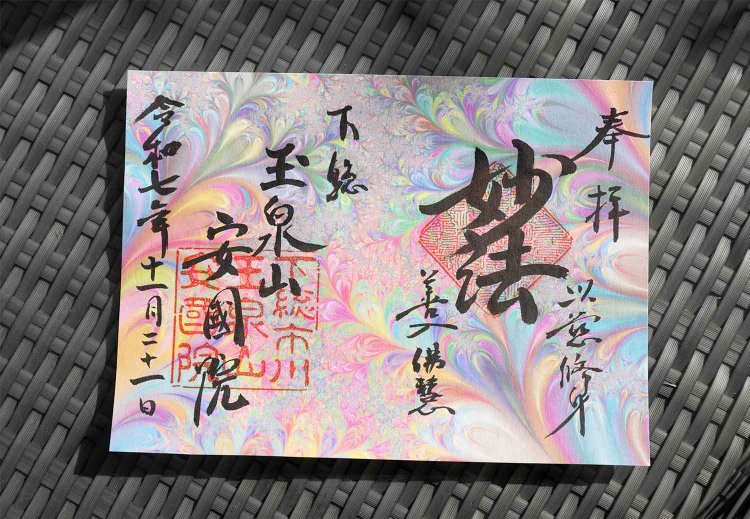 奉拝
以慈修身
妙法
善入佛慧
下総
玉泉山
安國院
令和七年十一月二十一日
下総市川
玉泉山
安國院